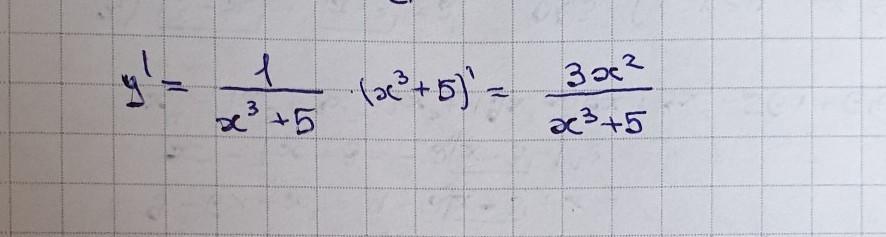 y' = 1/(x³+5) · (x³+5)' = 3x²/(x³+5)